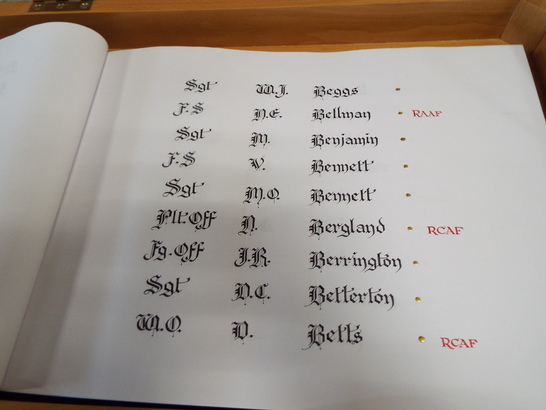 Sgt W.J. Beggs
F.S D.E. Bellman RAAF
Sgt M. Benjamin
F.S V. Bennett
Sgt M.O. Bennett
Plt.Off N. Bergland RCAF
Fg.Off J.R. Berrington
Sgt D.C. Betterton
W.O. D. Betts RCAF